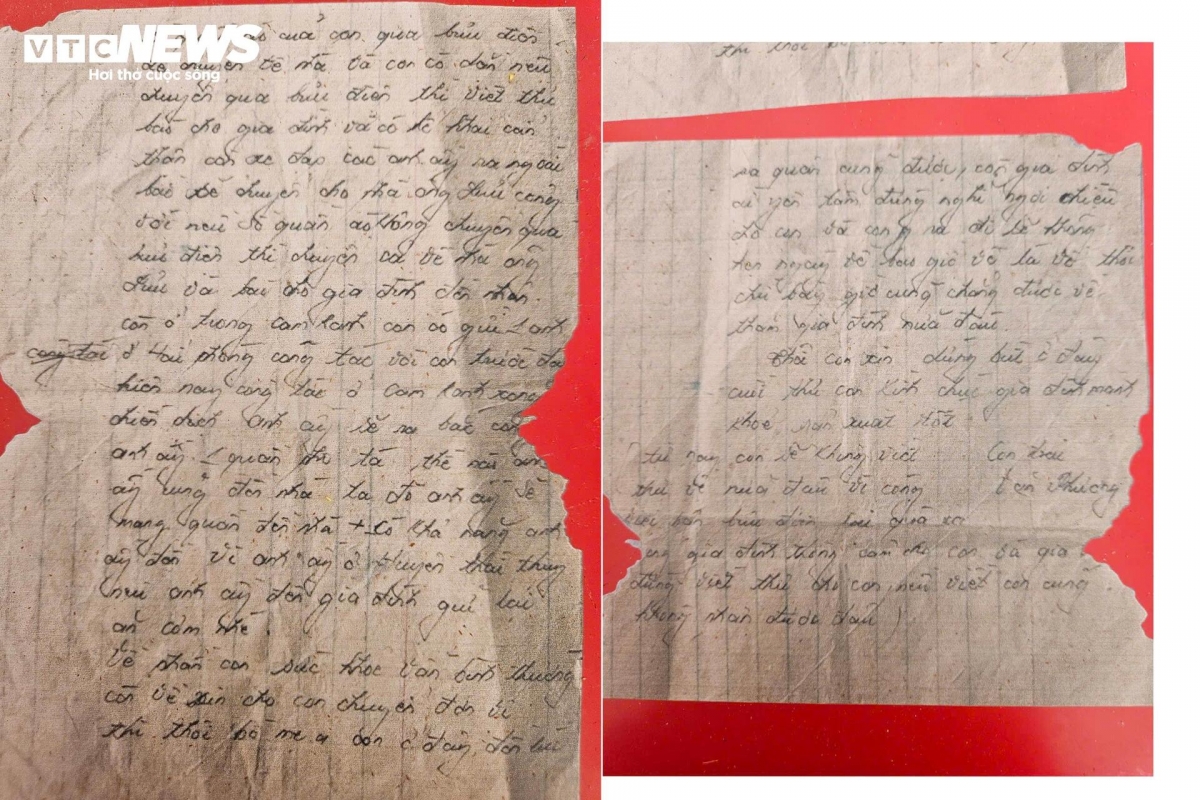 VTC NEWS
Hơi thở cuộc sống
của con qua bưu điện
để chuyển về nhà và con có dặn nếu
chuyển qua bưu điện thì viết thư
báo cho gia đình và có kê khai cẩn
thận con xe đạp các anh ấy ra ngoài
bắc sẽ chuyển cho nhà ông Lưu cùng
với nếu số quần áo không chuyển qua
bưu điện thì chuyển cả về nhà ông
Lưu và báo cho gia đình đến nhận
còn ở trong cam ranh con có gửi 1 anh
công tác ở Hải phòng công tác với con trước đây
hiện nay công tác ở Cam ranh xong
chiến dịch anh ấy sẽ ra bắc con
anh ấy 1 quần thế nào anh
ấy cũng đến nhà ta do anh ấy sẽ
mang quần đến nhà + có khả năng anh
ấy đến vì anh ấy ở Huyện thái thuỵ
nếu anh ấy đến gia đình giữ lại
ăn cơm nhé.
Về phần con sức khoẻ vẫn bình thường
còn về xin cho con chuyển đơn vị
thì thôi bố mẹ ạ con ở đây đến lúc
thì thôi bố
ra quân cũng được, còn gia đình
cứ yên tâm đừng nghĩ ngợi nhiều
do con và con ra đi sẽ không
hẹn ngày về bao giờ về là về thôi
chứ bây giờ cũng chẳng được về
thăm gia đình nữa đâu.
Thôi con xin dừng bút ở đây
cuối thư con kính chúc gia đình mạnh
khoẻ, sản xuất tốt
từ nay con sẽ không viết Con trai
thư về nữa đâu vì công Phương
bưu điện lại quá xa
gia đình thông cảm cho con và gia
đừng viết thư cho con, nếu viết con cũng
không nhận được đâu)